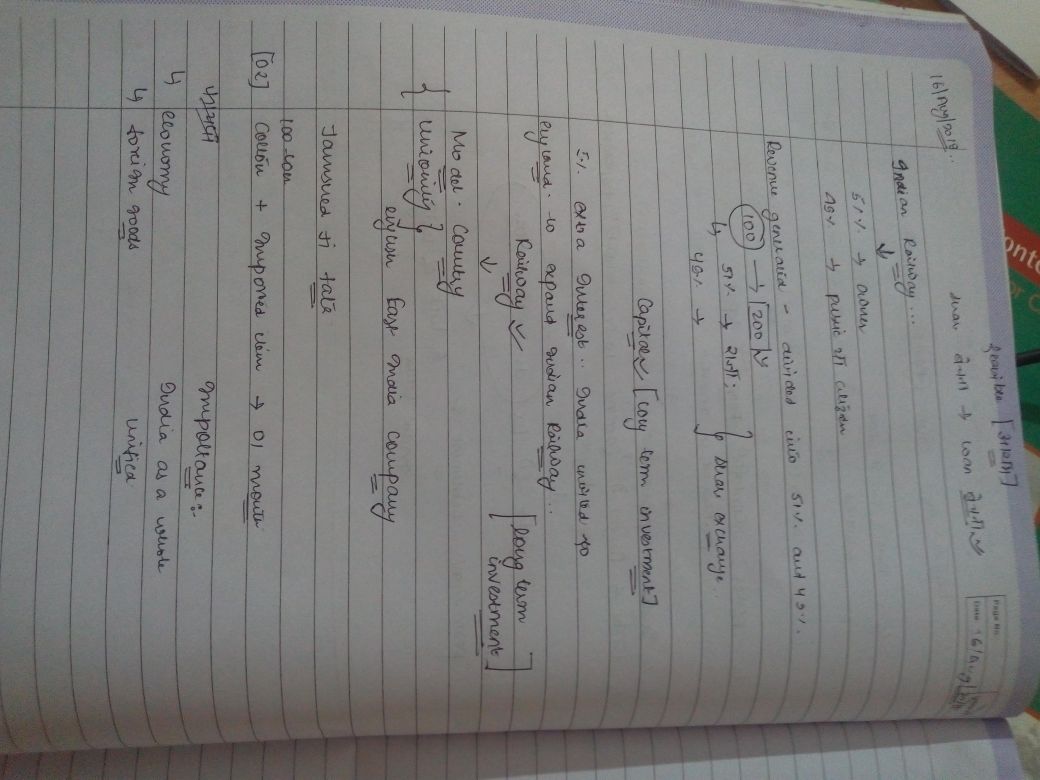 Feasible
Page No.
Date 16/Aug/
16/Aug/2019..
देना → Loan देना
Indian Railway...
↓
51% → owner
49% → public or citizen
Revenue generated - divided into 51% and 49%.
100 → 200
↳ 51% →
49% →
} Share exchange..
Capital [long term investment]
5% extra interest.. India invited to
england. to expand Indian Railway..
Railway
[long term investment]
↓
Model. Country
{ uniformity }
english East India Company
Jamshed ji tata
100 so
[02] cotton + Imported item → 01 month
Importance:-
↳ economy
India as a whole
↳ foreign goods
unified